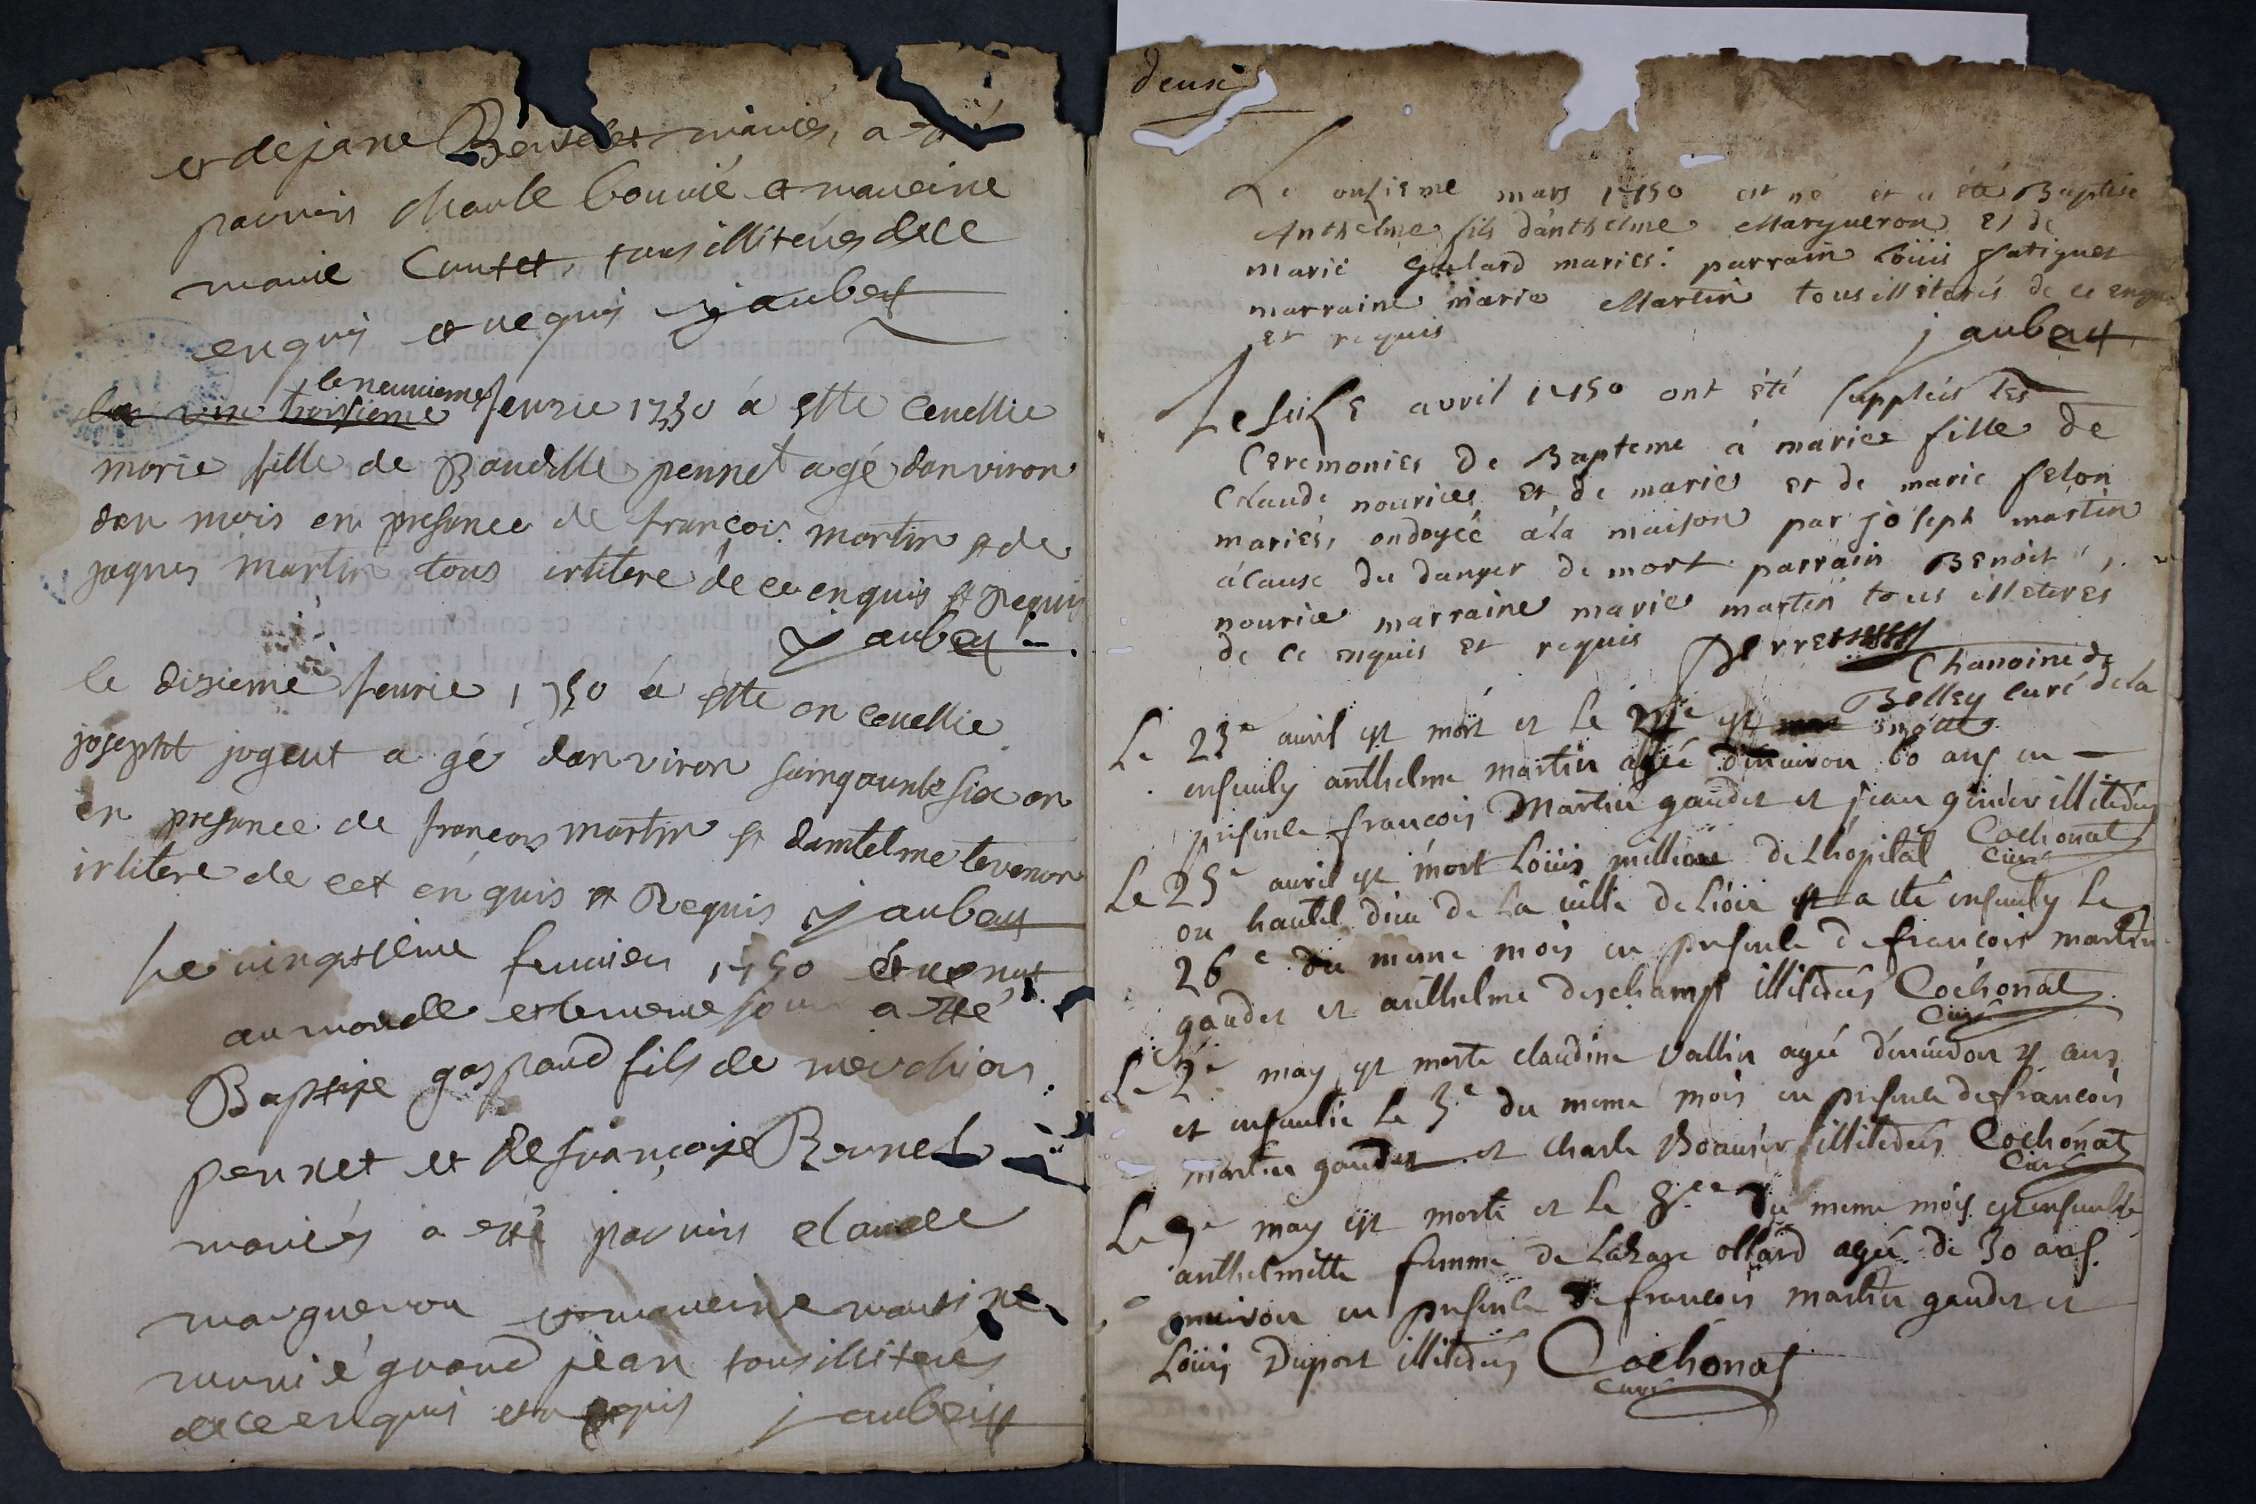 et de jane Berthet mariés, a été
parrain charle bouvié et mareine
marie Cautet, tous illiterés de ce
enquis et requis jaubert
le neuvieme
le vin troisieme feurie 1750 á estte ceuellie
marie fille de Baudille pernet agé danviron
don mois en presance de françois martin et de
jaques martin tous irlitere de ce enquis et Requis
jaubert
le disieme feurie 1750 á estte on ceuellie
josepht jogeut a gé danviron sainquante six on
en presance de francois martin et dantelme tevenon
irlitere de cet enquis et Requis jaubert
Le vingtième fevrier 1750 est venut
au monde et le meme jour a été
Baptise gaspard fils de merchior
pernet et de françoise Bernel
mariés a été parrin claude
marguerou et mareine martine
murié grand jean tous illiterés
de ce enquis et requis jaubert
deusi
Le onsieme mars 1750 est né et a été Baptisé
Anthelme fils d'anthelme Margueron et de
marie Gullard mariés: parrain loüis fatiguet
marraine marie Martin tous illiterés de ce enquis
et requis
jaubert
Le seise avril 1750 ont été suppleés les
Ceremonies de Bapteme á marie fille de
Claude nourice et de marie et de marie felon
mariés, ondoyée á la maison par joseph martin
ácause du danger de mort parrain Benoit
nourice marraine marie martin tous illeterés
de ce enquis et requis Perret
Chanoine de
Belley curé de la
motte
Le 23e auril est mort et le est
enseuely anthelme martin agée denuiron 60 ans en
presence francois Martin gaudet et jean genier illiterés
Cochonat
Curé
Le 25e auril est mort Loüis million de Lhópital
ou hautel dieu de la uille de Lion et a ete enseuely le
26e du meme mois en presence de francois martin
gaudet et anthelme deschamps illiterés Cochonat
Curé
Le 2e may est morte claudine vallin agée denuiron 7 ans
et enseuelie le 3e du meme mois en presence de francois
martin gaudet et charle Bouvier illiterés Cochonat
Curé
Le 7e may est morte et le 8e du meme mois est enseuelie
anthelmette femme de Lazare ollard agée de 30 ans
enuiron en presence de francois martin gaudet et
Loüis Duport illiterés Cochonat
Curé